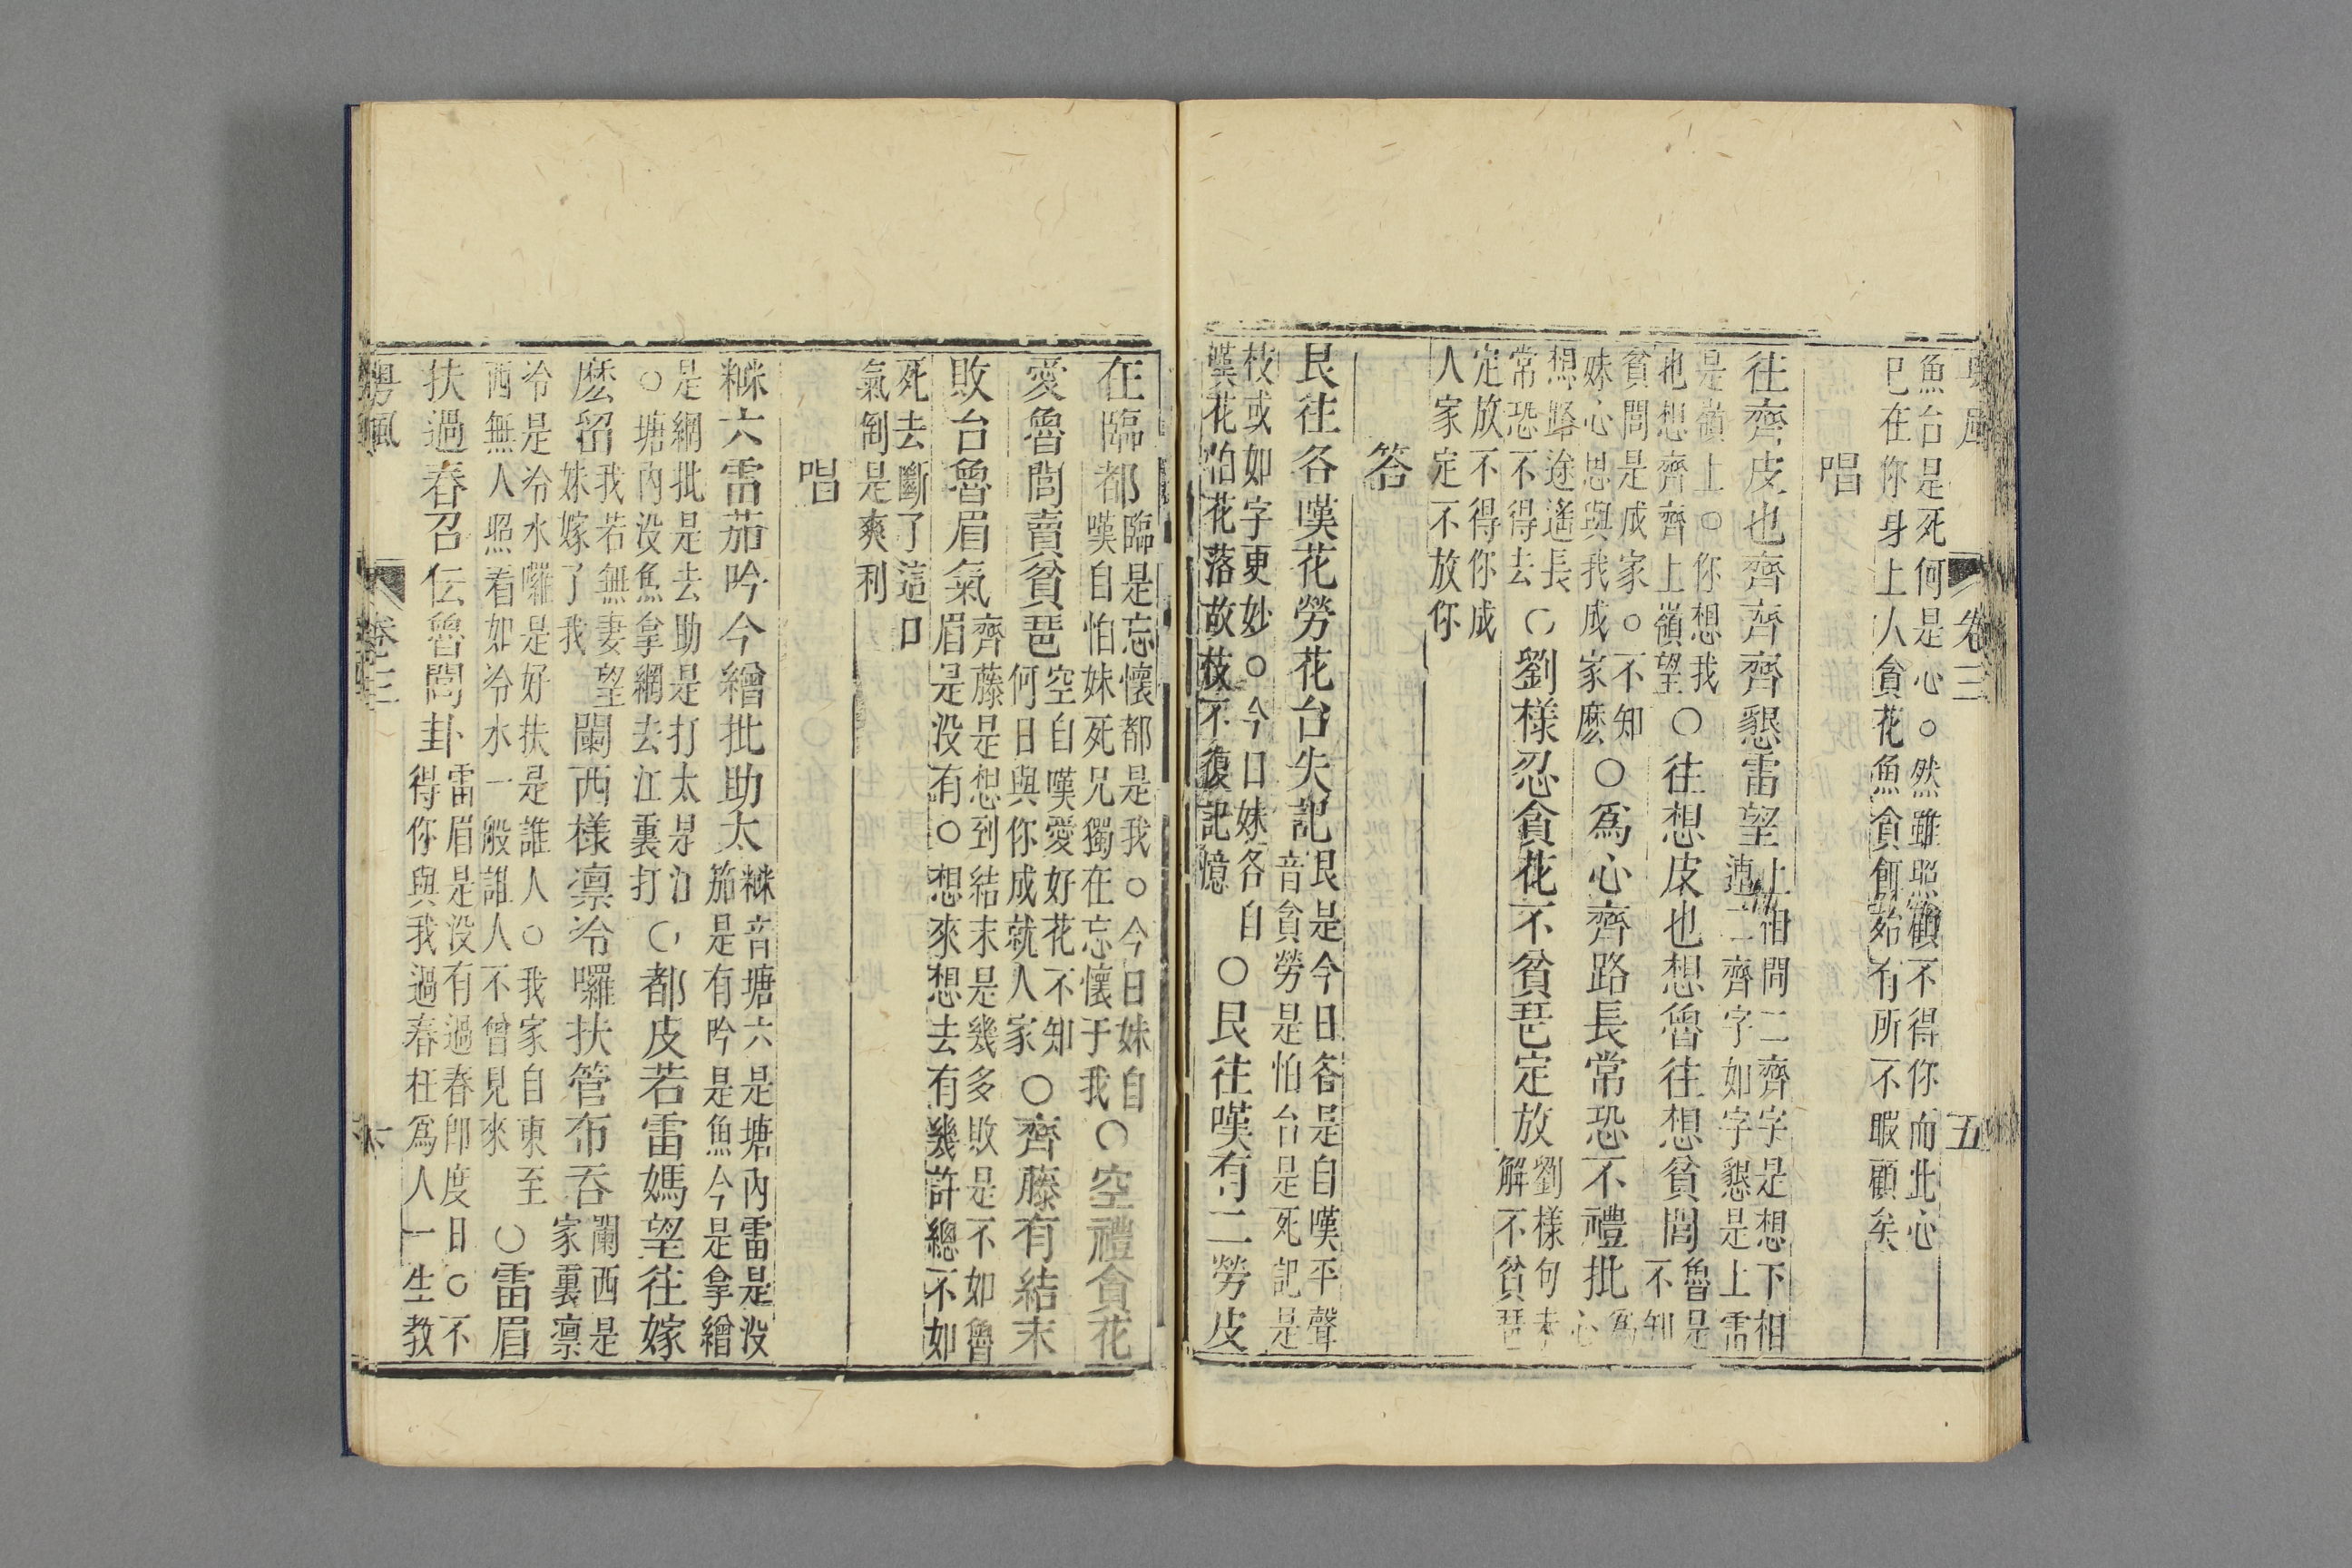 卷三
五
魚台是死何是心○然雖照顧不得你而此心
已在你身上人貪花魚貪餌始有所不暇顧矣
唱
往齊皮也齊齊齊懇雷望上相問二齊字是想下相
連二齊字如字懇是上雷
是嶺上○你想我
也想齊齊上嶺望○往想皮也想魯往想貧閭魯是
不知
貧閭是成家○不知
妹心思與我成家麽○爲心齊路長常恐不禮批爲
心
想路途遙長
常恐不得去○劉樣忍貪花不貧琶定放劉樣句未
解不貧琶
定放不得你成
人家定不放你
答
艮往各嘆花勞花台失記艮是今日各是自嘆平聲
音貧勞是怕台是死記是
枝或如字更妙○今日妹各自
嘆花怕花落故枝不復記憶○艮往嘆有二勞皮
在臨都臨是忘懷都是我○今日妹自
嘆自怕妹死兄獨在忘懷于我○空禮貪花
愛魯閭賣貧琶空自嘆愛好花不知
何日與你成就人家○齊藤有結末
敗台魯眉氣齊藤是想到結末是幾多敗是不如魯
眉是没有○想來想去有幾許總不如
死去斷了這口
氣倒是爽利
唱
𥻦六雷茄吟今繒批助太𥻦音塘六是塘內雷是没
茄是有吟是魚今是拿繒
是網批是去助是打太是江
○塘內没魚拿網去江裏打○都皮若雷媽望往嫁
麽留我若無妻望
妹嫁了我闌西樣凛冷囉扶管布吞闌西是
家裏凛
冷是冷水囉是好扶是誰人○我家自東至
西無人照看如冷水一般誰人不曾見來○雷眉
扶過春召伝魯閭卦雷眉是没有過春即度日○不
得你與我過春枉爲人一生教
粤風
卷三
六